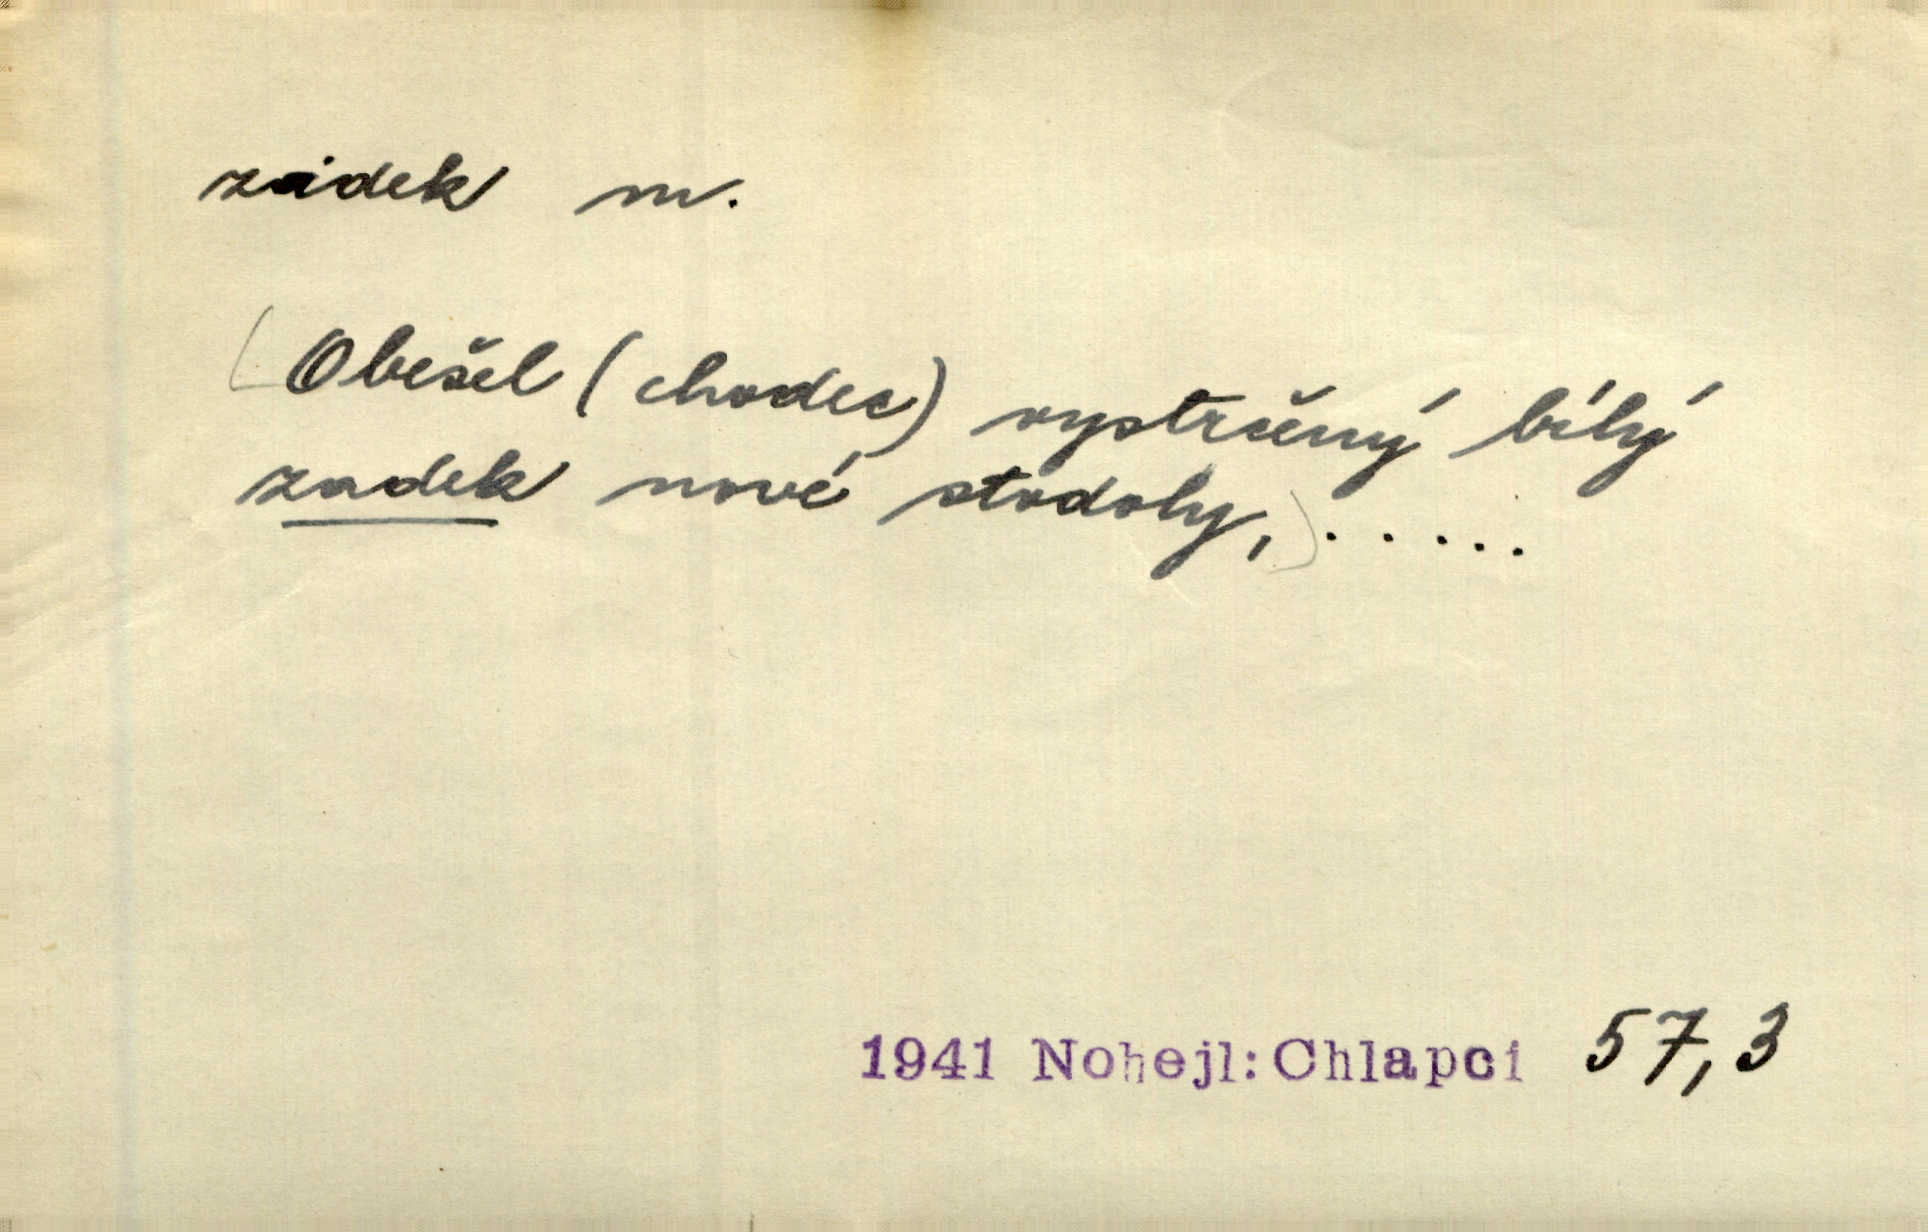 zadek m.
(Obešel (chodec) vystrčený bílý
zadek nové stodoly,) . . . . . .
1941 Nohejl: Chlapci 57,3